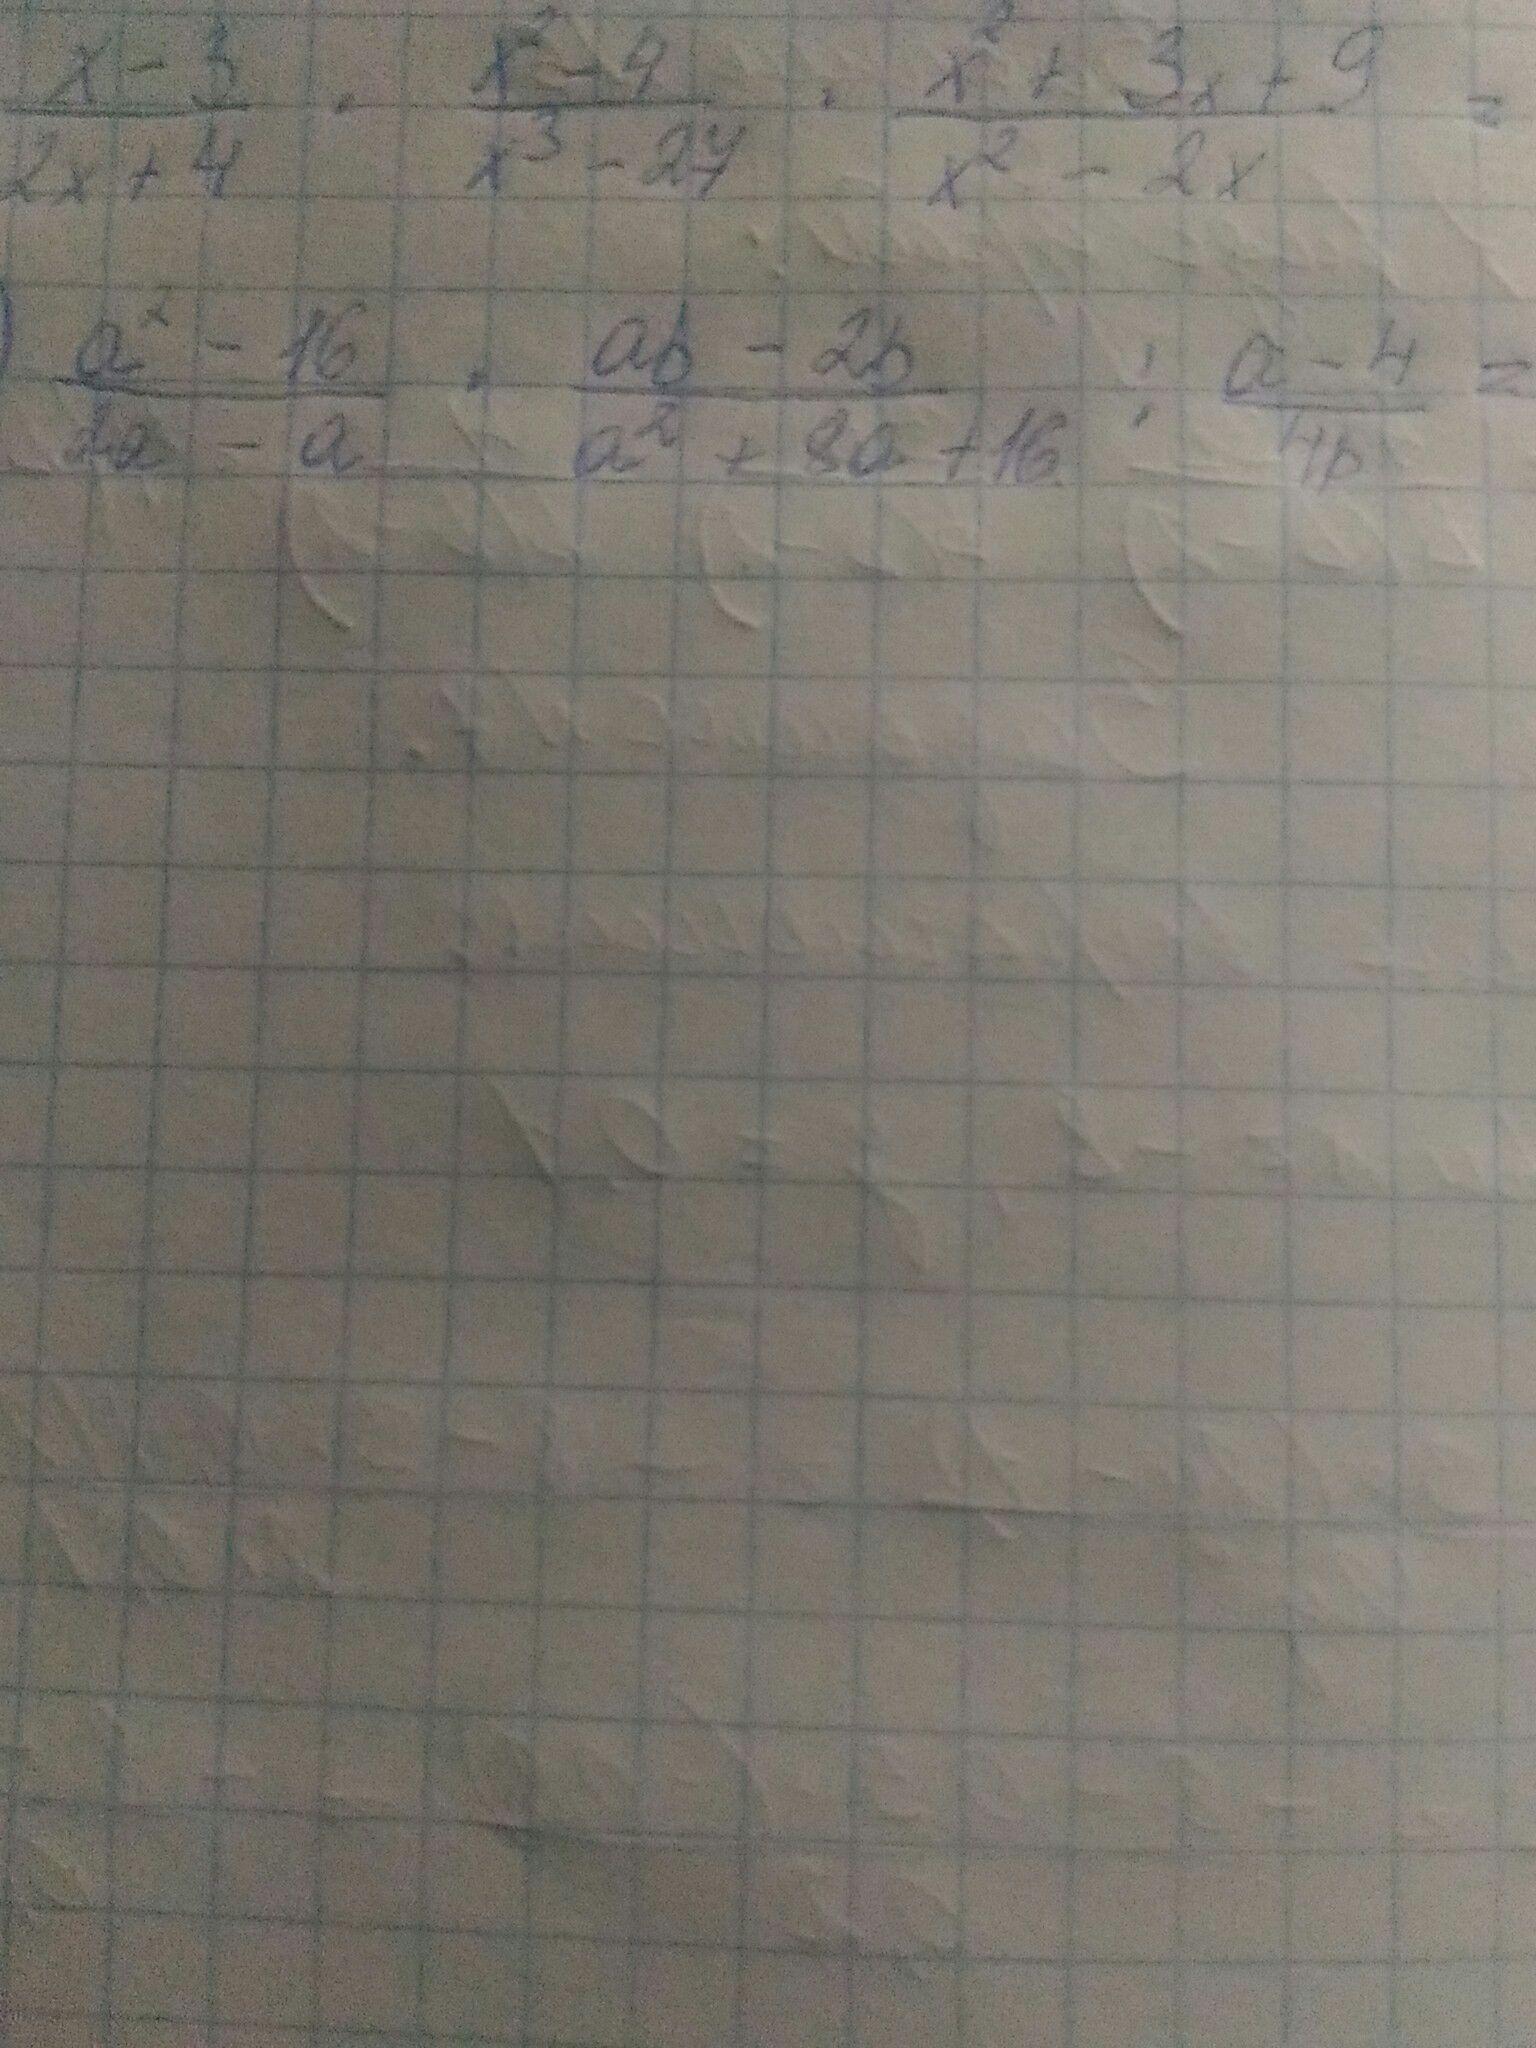 x - 3 / 2x + 4 · x² - 4 / x³ - 27 · x² + 3x + 9 / x² - 2x =
) a² - 16 / 2a - a · ab - 2b / a² + 8a + 16 : a - 4 / 4b =